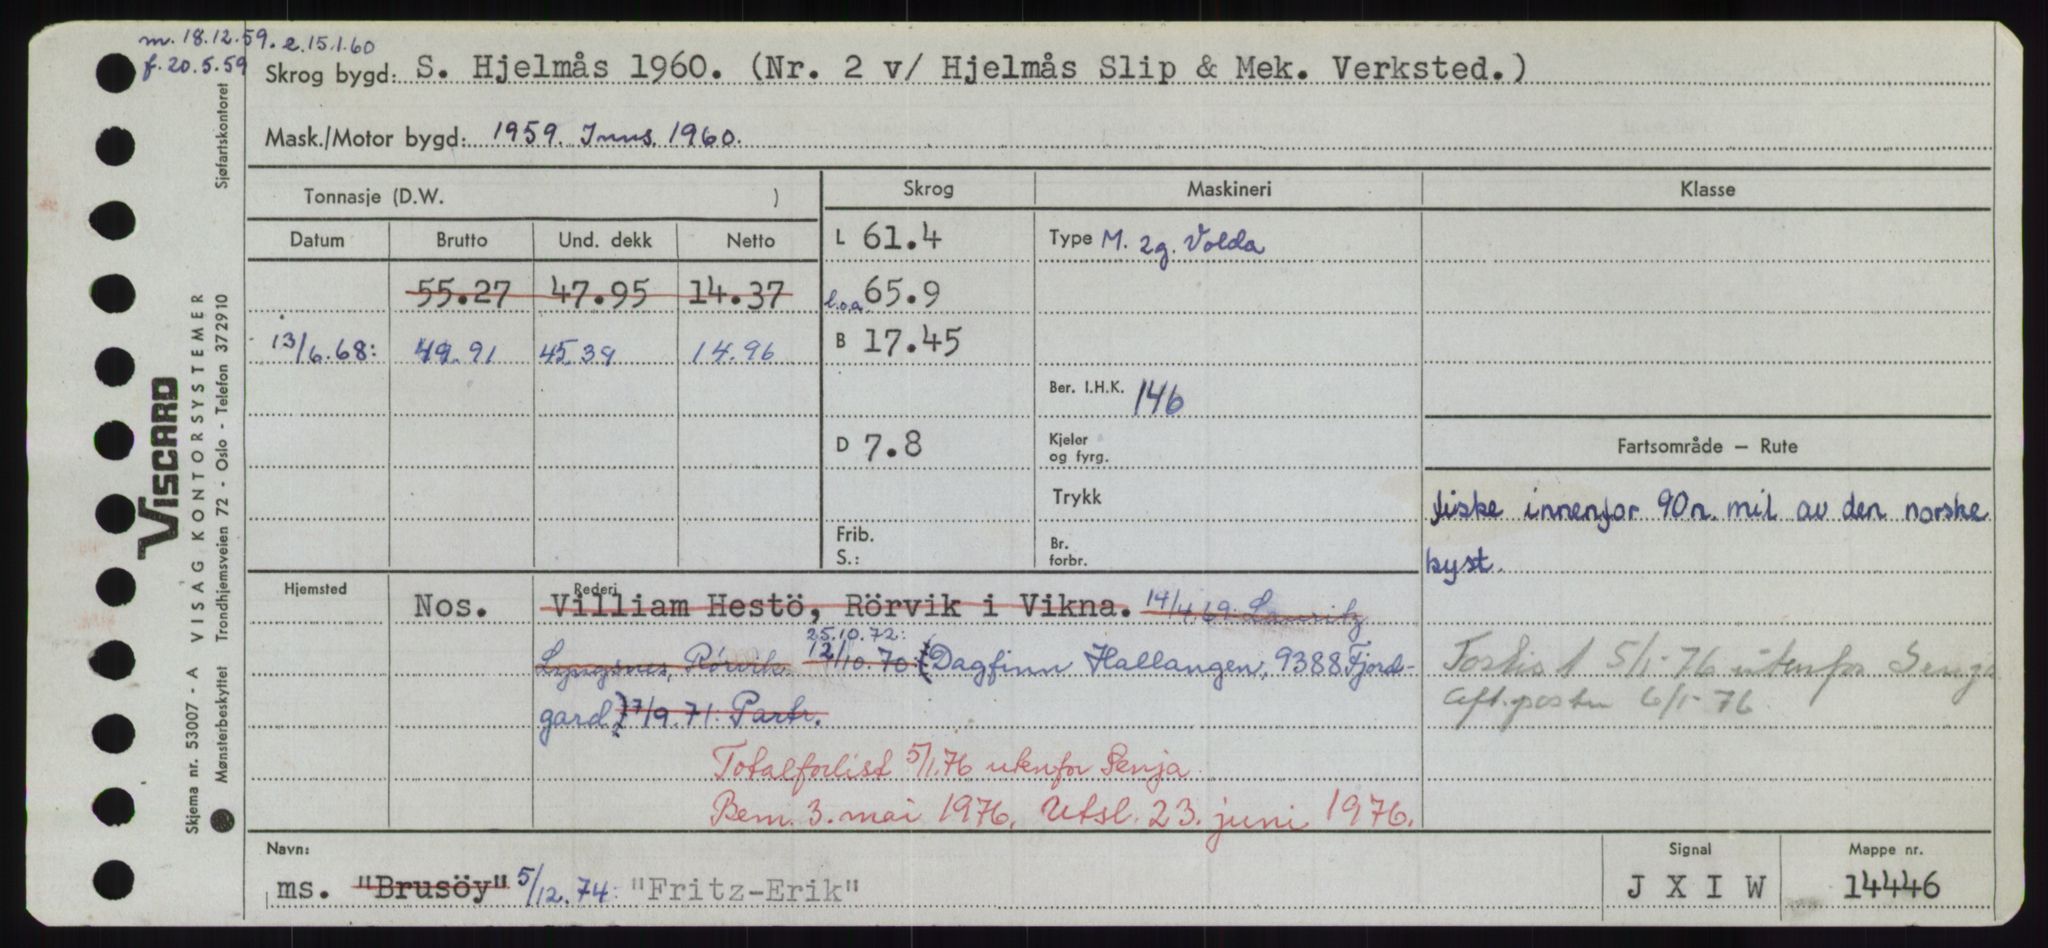 m. 18.12.59. e. 15.1.60
f. 20.5.59
Skrog bygd: S. Hjelmås 1960. (Nr. 2 v/ Hjelmås Slip & Mek. Verksted.)
Mask./Motor bygd: 1959. Inns. 1960.
Tonnasje (D.W. )
Skrog Maskineri Klasse
Datum Brutto Und. dekk Netto
L 61.4 Type M. 2g. Volda
55.27 47.95 14.37 l.o.a 65.9
13/6.68: 49.91 45.39 14.96 B 17.45
Ber. I.H.K. 146
D 7.8 Kjeler og fyrg.
Fartsområde — Rute
Trykk
fiske innenfor 90 n. mil av den norske
kyst.
Frib.
S.:
Br. forbr.
Hjemsted Nos. Rederi Villiam Hestö, Rörvik i Vikna. 14/4.69: Lauritz
Lyngsnes, Rörvik 25.10.72: 12/10.70 (Dagfinn Hallangen, 9388 Fjord-
gard) 17/9.71: Partr.
Forlis t 5/1-76 utenfor Senja
Aft.posten 6/1-76
Totalforlist 5/1.76 utenfor Senja.
Bem. 3. mai 1976. Utsl. 23. juni 1976.
Navn: Signal Mappe nr.
ms. "Brusöy" 5/12.74: "Fritz-Erik" J X I W 14446
Skjema nr. 53007 - A VISAG KONTORSYSTEMER
VISCARD
Mønsterbeskyttet Trondhjemsveien 72 - Oslo - Telefon 372910 Sjøfartskontoret